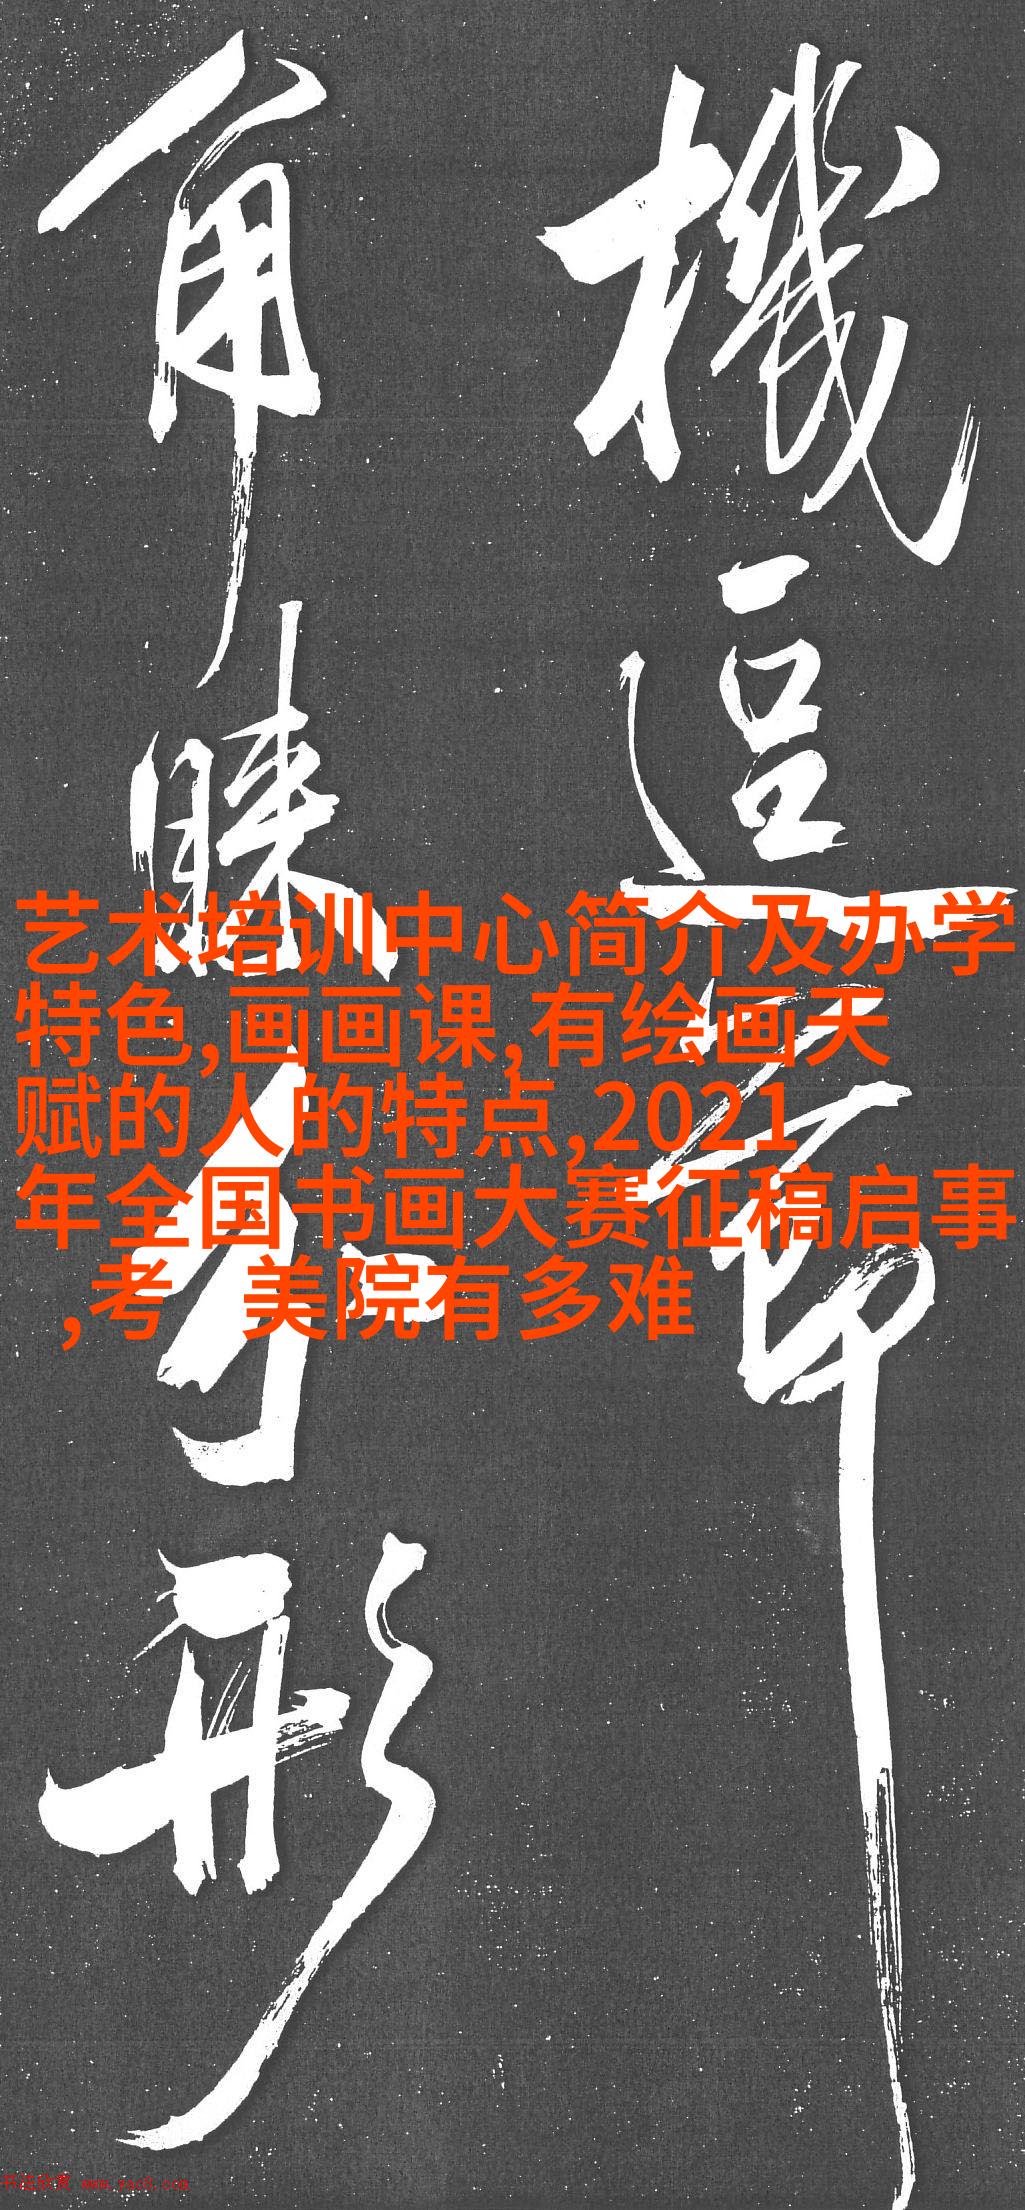 機逗節
角睞手形
艺术培训中心简介及办学
特色,画画课,有绘画天
赋的人的特点,2021
年全国书画大赛征稿启事
,考 美院有多难
书法欣赏 www.yac8.com